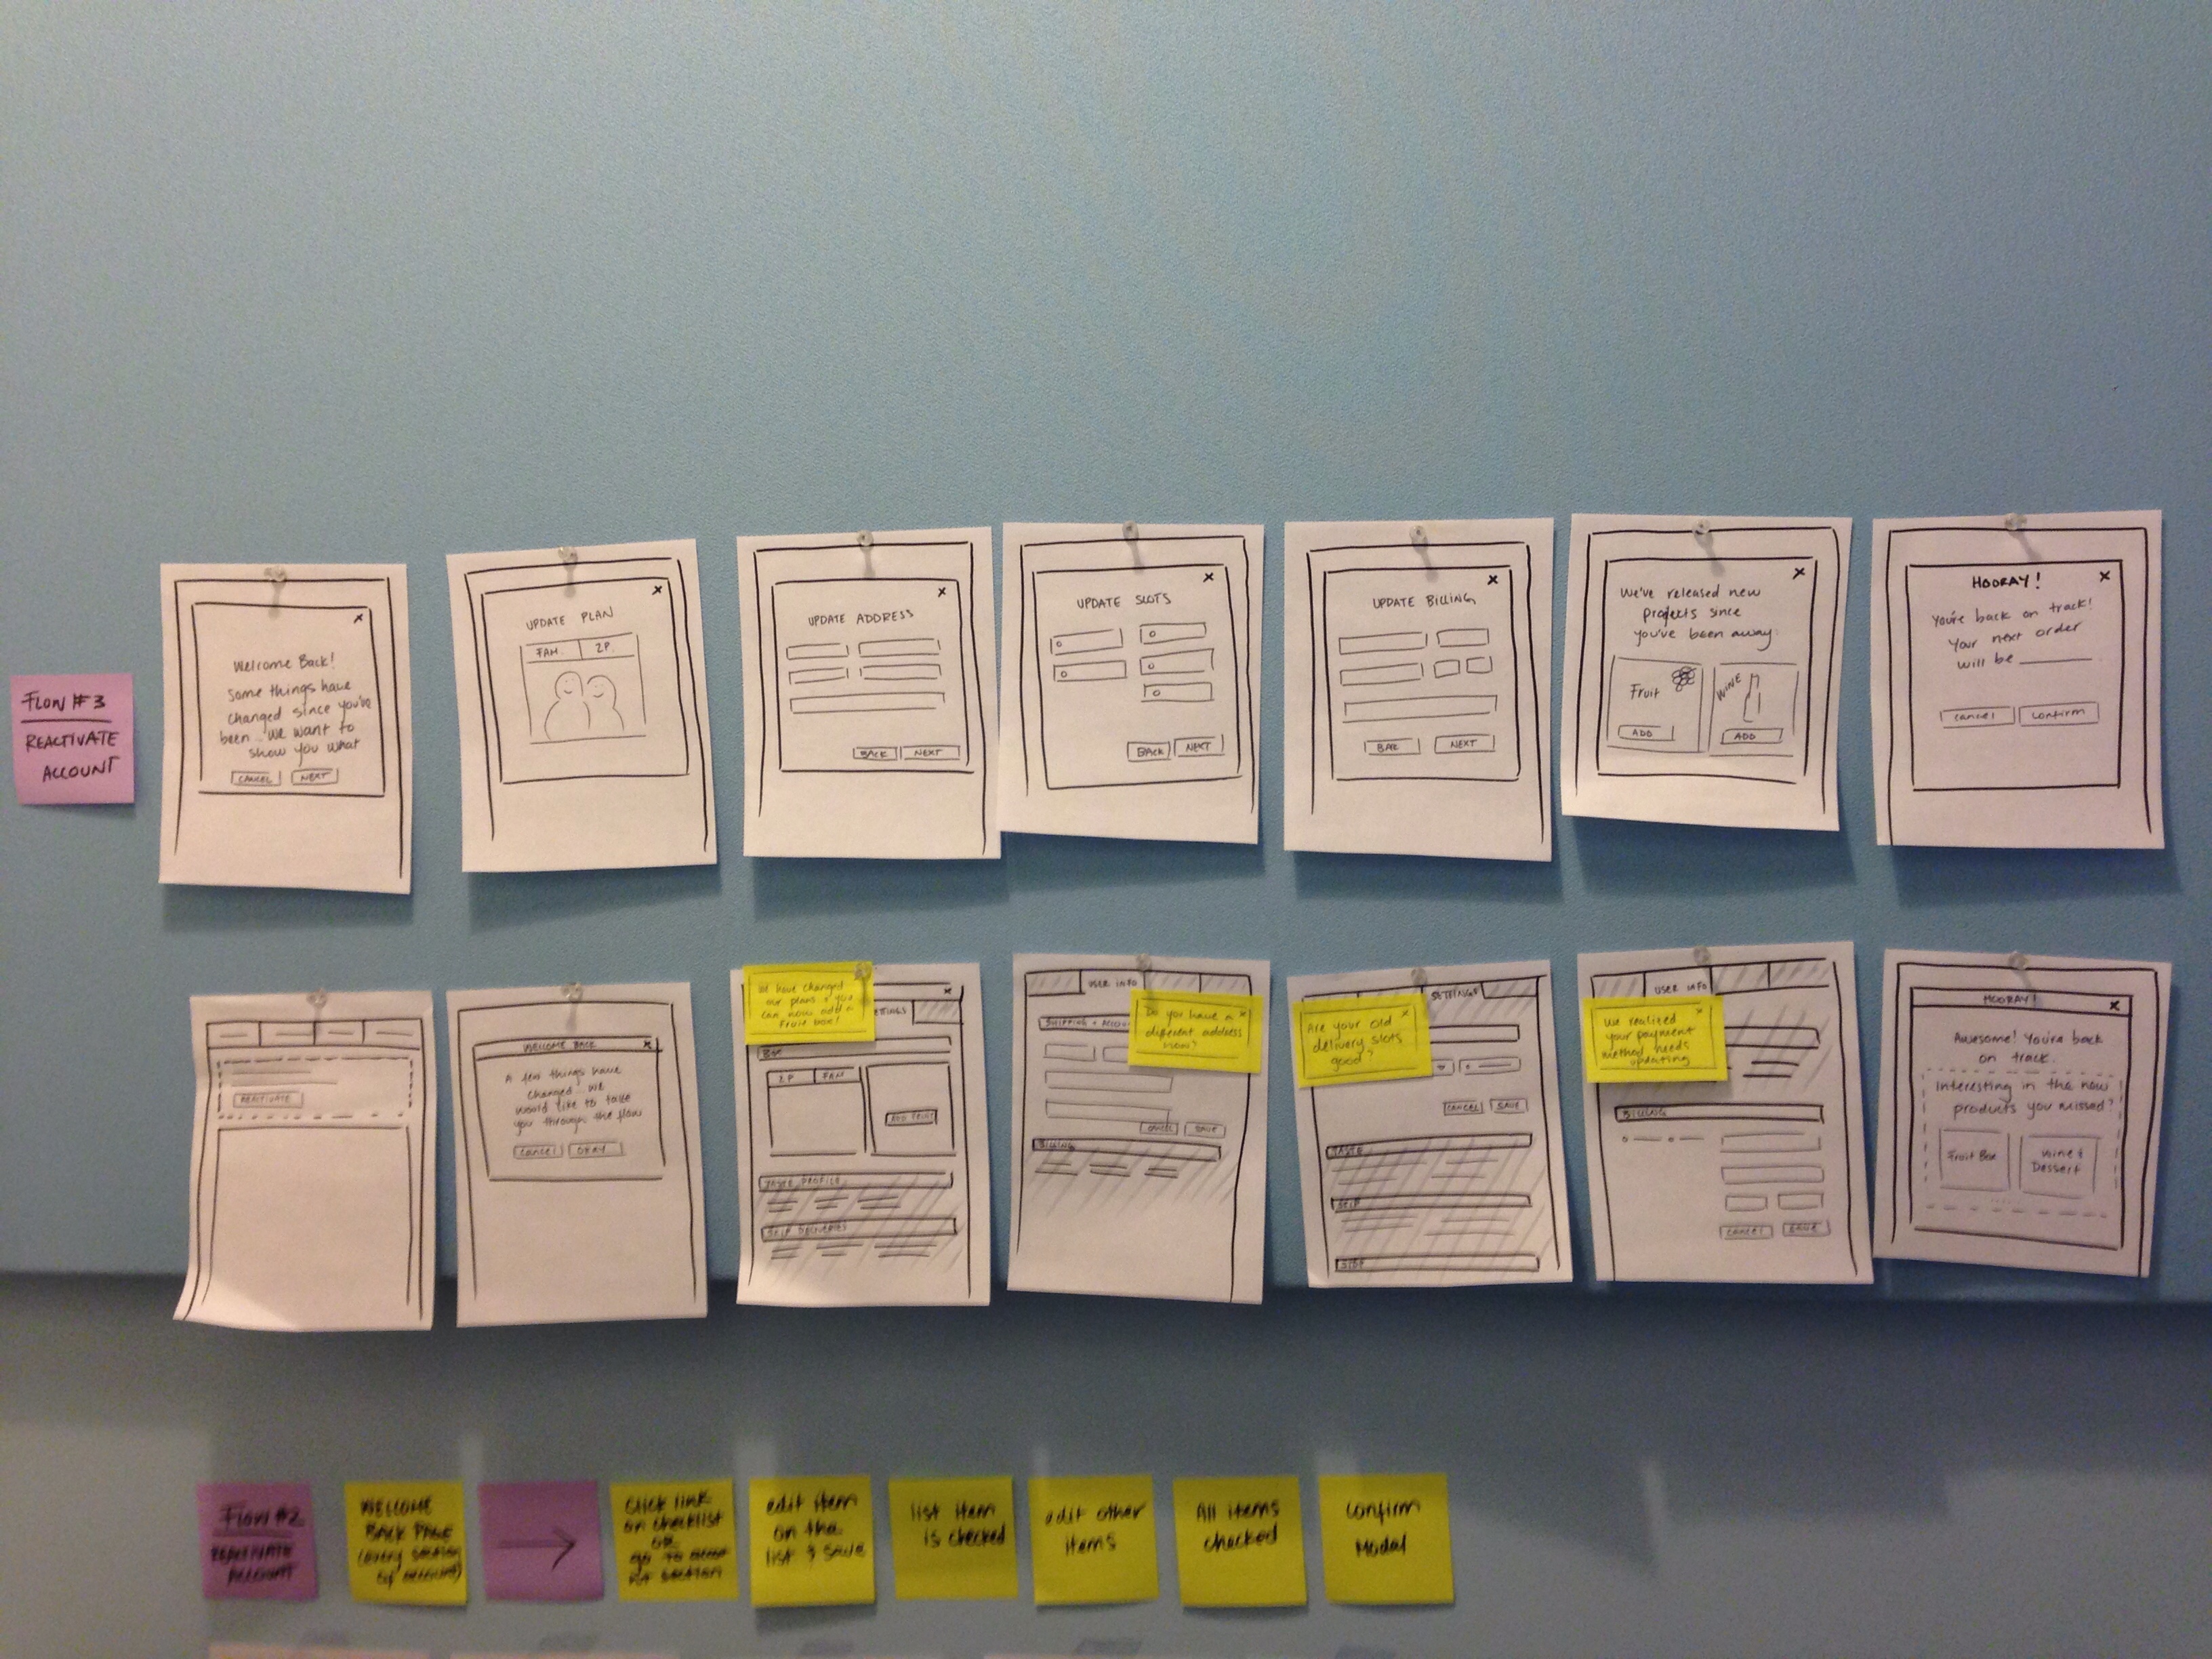 Flow #3
REACTIVATE
ACCOUNT
x
Welcome Back!
Some things have
changed since you've
been... we want to
show you what
CANCEL NEXT
x
UPDATE PLAN
FAM. 2P.
x
UPDATE ADDRESS
BACK NEXT
x
UPDATE SLOTS
BACK NEXT
x
UPDATE BILLING
BACK NEXT
x
We've released new
projects since
you've been away:
Fruit
ADD
WINE
ADD
x
HOORAY!
You're back on track!
Your next order
will be ______
cancel confirm
REACTIVATE
WELCOME BACK x
A few things have
changed... we
would like to take
you through the flow
cancel OKAY
We have changed
our plans & you
can now add a
fruit box!
x
SETTINGS
BOX
2P FAM
ADD FRUIT
TASTE PROFILE
SKIP DELIVERIES
USER INFO
SHIPPING + ACCOUNT
Do you have a x
different address
now?
CANCEL SAVE
BILLING
SETTINGS
Are your old x
delivery slots
good?
CANCEL SAVE
TASTE
SKIP
USER INFO
We realized x
your payment
method needs
updating
BILLING
CANCEL SAVE
HOORAY! x
Awesome! You're back
on track.
Interesting in the new
products you missed?
Fruit Box
wine &
Dessert
Flow #2
REACTIVATE
ACCOUNT
WELCOME
BACK PAGE
(every section
of account)
→
click link
on checklist
OR
go to
section
edit item
on the
list & save
list item
is checked
edit other
items
All items
checked
confirm
Modal